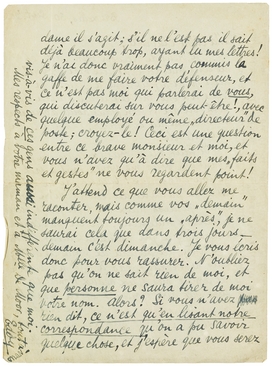 dame il s'agit: s'il ne l'est pas il sait
déjà beaucoup trop, ayant lu mes lettres!
Je n'ai donc vraiment pas commis la
gaffe de me faire votre défenseur, et
ce n'est pas moi qui parlerai de vous,
qui discuterai sur vous peut être!, avec
quelque employé ou même "directeur de
poste; croyez-le! Ceci est une question
entre ce brave monsieur et moi, et
vous n'avez qu'à dire que mes "faits
et gestes" ne vous regardent point!
J'attend ce que vous allez me
raconter, mais comme vos "demain"
manquent toujours un "après", je ne
saurai cela que dans trois jours –
demain c'est dimanche. Je vous écris
donc pour vous rassurer. N'oubliez
pas qu'on ne sait rien de moi, et
que personne ne saura tirer de moi
votre nom. Alors? Si vous n'avez
rien dit, ce n'est qu'en lisant notre
correspondance qu'on a pu savoir
quelque chose, et j'espère que vous serez
vis-à-vis de ces gens aussi indifférente que moi.
Mes respects à votre maman et à